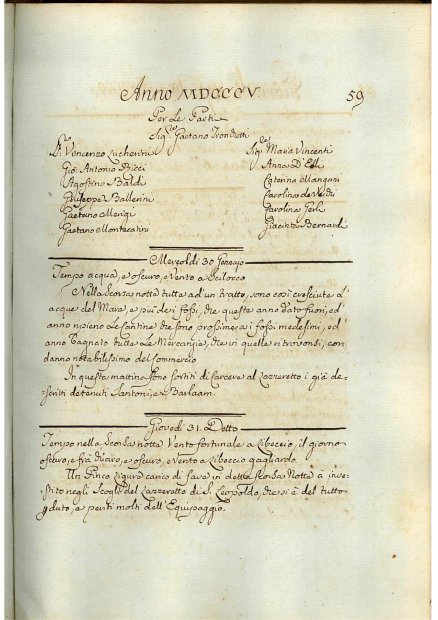 Anno MDCCCV.
59
Per Le Parti
Sig.re Gaetano Trondetti
Sig.re Maria Vincenti
Gio: Antonio Ricci
Anna D'Elli
Agostino Baldi
Caterina Mangani
Giuseppe Ballerini
Carolina de Verdi
Gaetano Merigi
Carolina Gerli
Gaetano Montecatini
Giacinta Bernardi
Mercoldi 30 Gennajo
Tempo acqua, e oscuro, e Vento a Scilocco
Nella scorsa notte tutte ad' un tratto, sono così cresciute l'
acque del Mare, e più dei fossi, che queste anno dato fuori, ed
anno ripieno le Cantine che sono prossime ai fossi medesimi, ed
anno bagnato tutte le Mercanzie, che in quelle ritrovonsi, con
danno notabilissimo del Commercio
In questa mattina sono sortiti di Carcere al Lazzeretto i già de-
scritti detenuti Santoni, e Barlaam.
Giovedì 31. Detto
Tempo nella scorsa notte Vento fortunale a Libeccio, il giorno
oscuro, e fra chiaro, e oscuro, e Vento a Libeccio gagliardo
Un Pinco Ligure carico di fave in detta scorsa Notte à inve-
stito negli Scogli del Lazzeretto di S. Leopoldo, che si è del tutto
pduto, e periti molti dell'Equipaggio.